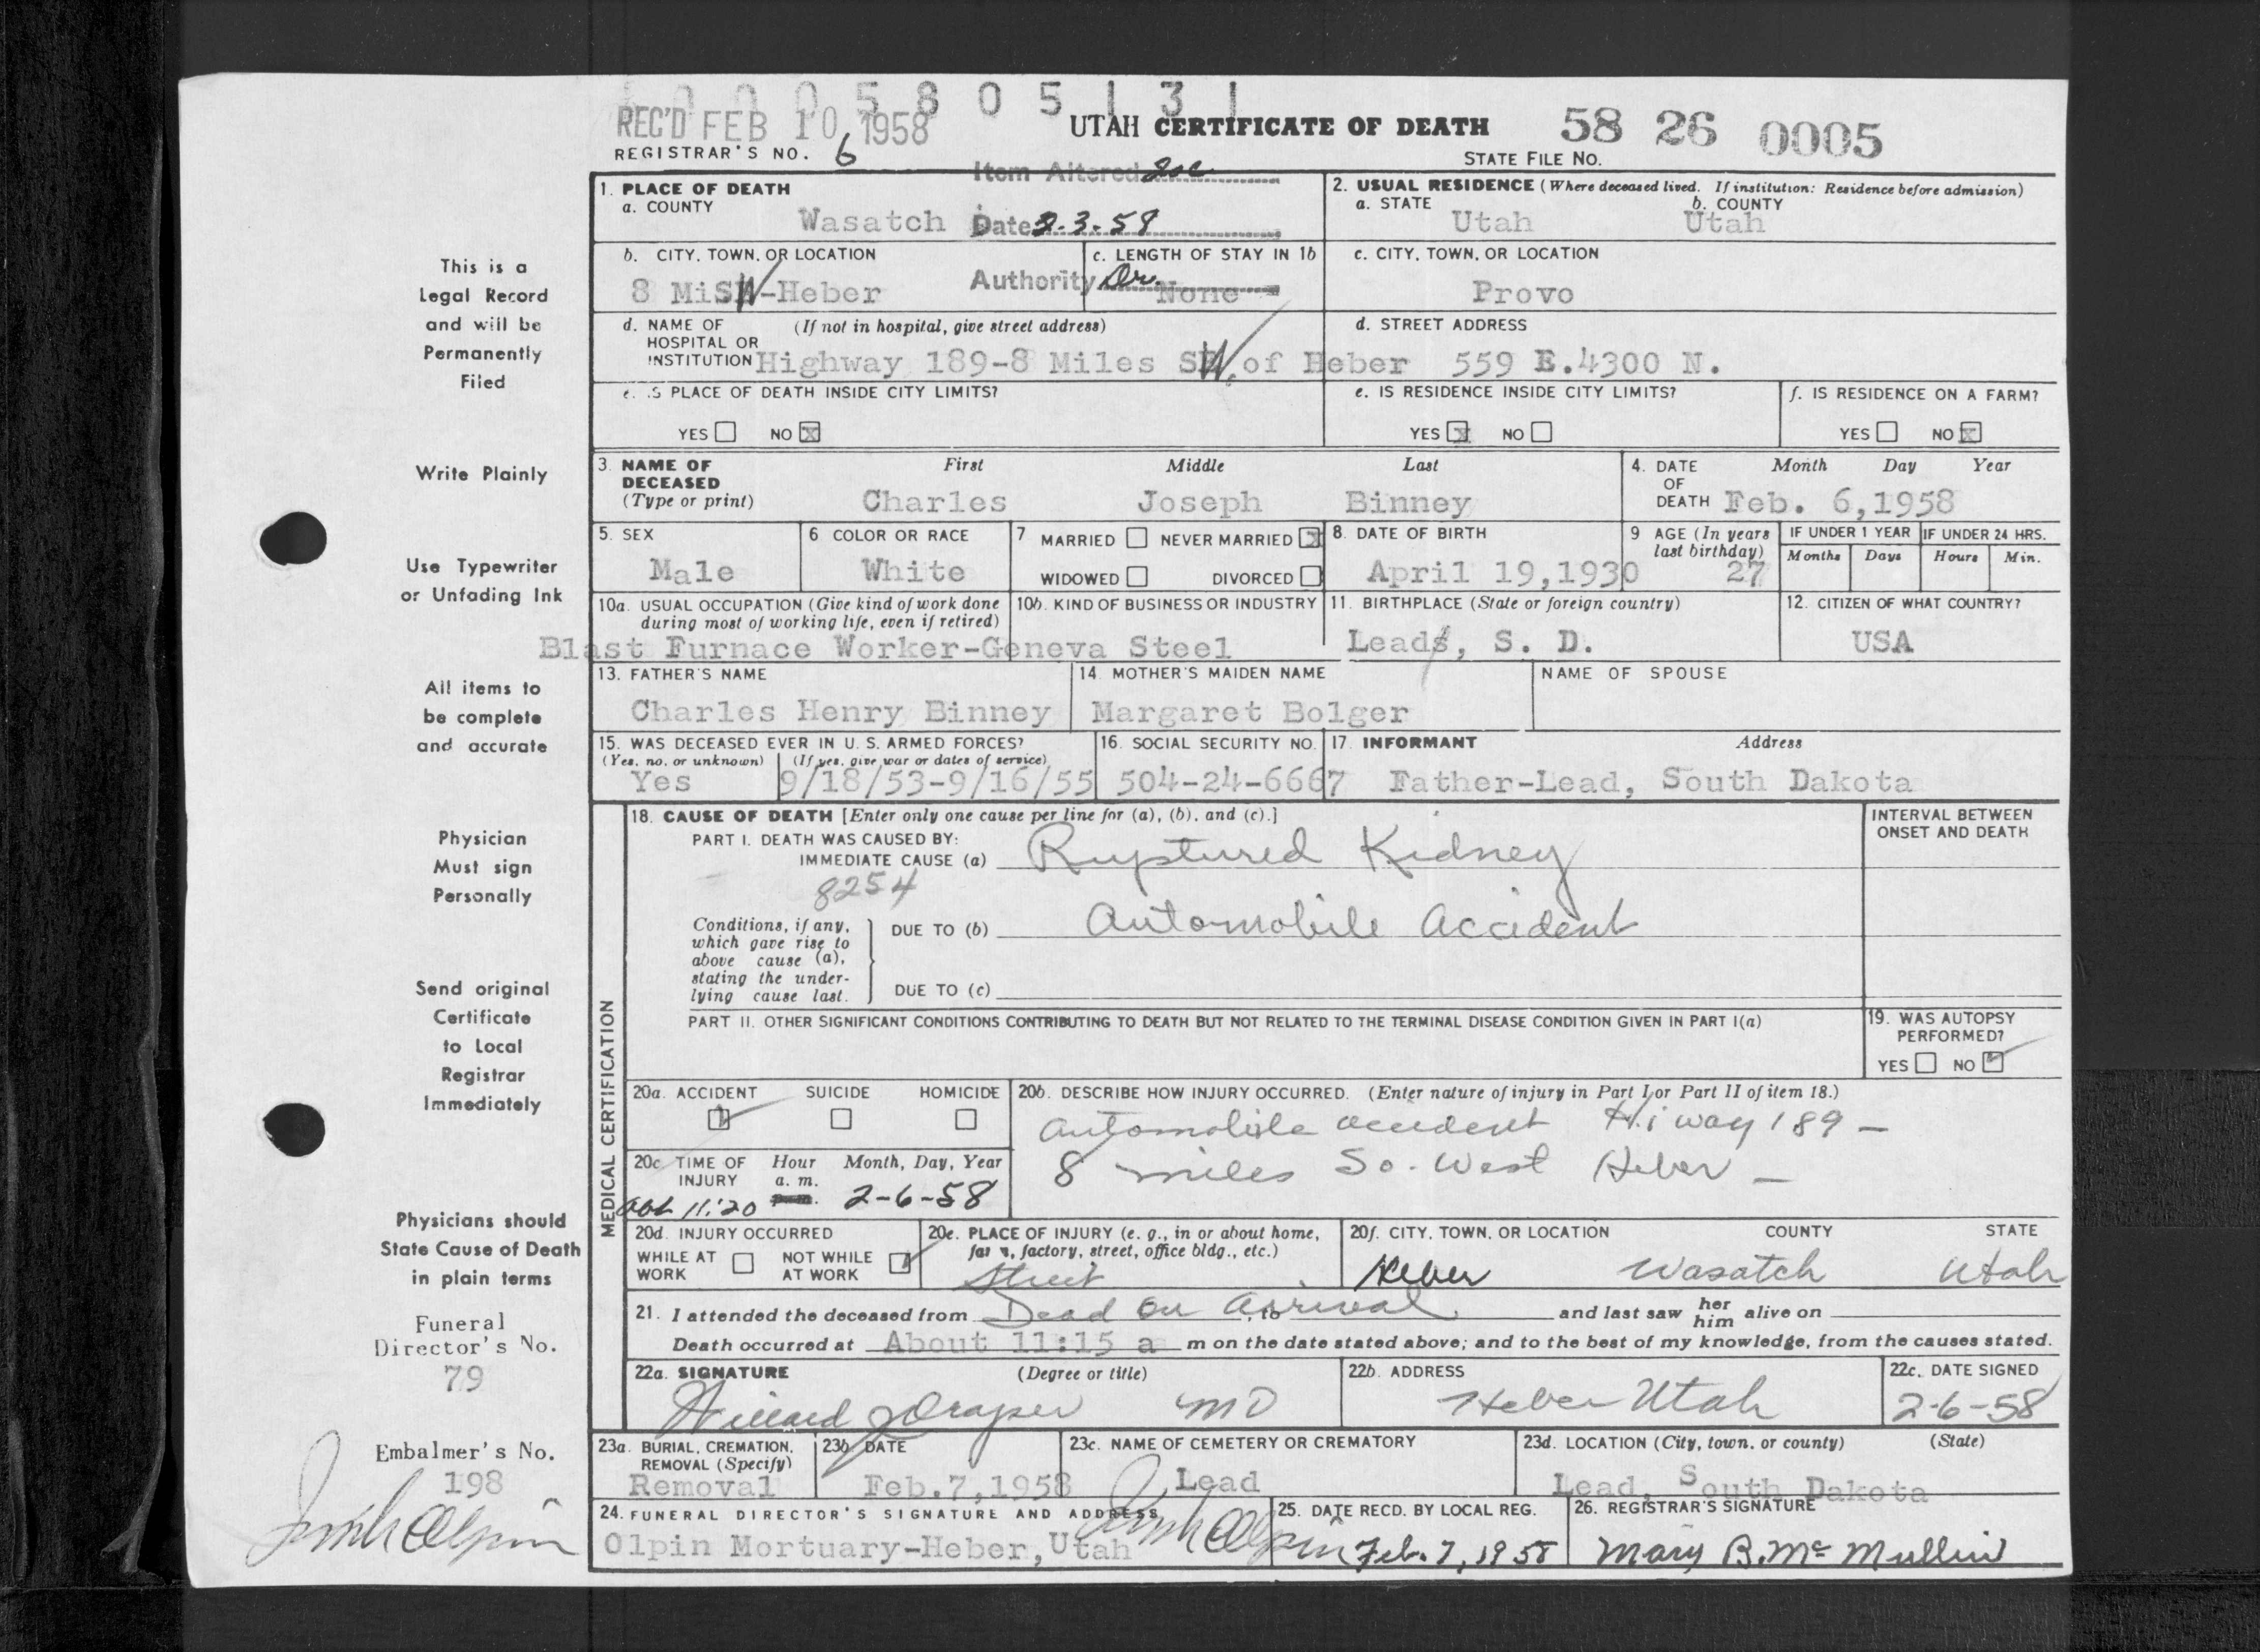 0005805131
REC'D FEB 10 1958
UTAH CERTIFICATE OF DEATH
58 26 0005
REGISTRAR'S NO. 6
STATE FILE NO.
Item Altered 20c
Date 3-58
Authority Dr.
1. PLACE OF DEATH
a. COUNTY
Wasatch
2. USUAL RESIDENCE (Where deceased lived. If institution: Residence before admission)
a. STATE b. COUNTY
Utah Utah
b. CITY, TOWN, OR LOCATION
8 MiSW-Heber
c. LENGTH OF STAY IN 1b
None
c. CITY, TOWN, OR LOCATION
Provo
d. NAME OF HOSPITAL OR INSTITUTION (If not in hospital, give street address)
Highway 189-8 Miles SW of Heber
d. STREET ADDRESS
559 E.4300 N.
e. IS PLACE OF DEATH INSIDE CITY LIMITS?
YES NO X
e. IS RESIDENCE INSIDE CITY LIMITS?
YES X NO
f. IS RESIDENCE ON A FARM?
YES NO X
3. NAME OF DECEASED (Type or print)
First Middle Last
Charles Joseph Binney
4. DATE OF DEATH Month Day Year
Feb. 6,1958
5. SEX
Male
6 COLOR OR RACE
White
7 MARRIED NEVER MARRIED X
WIDOWED DIVORCED
8. DATE OF BIRTH
April 19,1930
9 AGE (In years last birthday)
27
IF UNDER 1 YEAR
Months Days
IF UNDER 24 HRS.
Hours Min.
10a. USUAL OCCUPATION (Give kind of work done during most of working life, even if retired)
10b. KIND OF BUSINESS OR INDUSTRY
Blast Furnace Worker-Geneva Steel
11. BIRTHPLACE (State or foreign country)
Leads, S. D.
12. CITIZEN OF WHAT COUNTRY?
USA
13. FATHER'S NAME
Charles Henry Binney
14. MOTHER'S MAIDEN NAME
Margaret Bolger
NAME OF SPOUSE
15. WAS DECEASED EVER IN U. S. ARMED FORCES?
(Yes, no, or unknown) (If yes, give war or dates of service)
Yes 9/18/53-9/16/55
16. SOCIAL SECURITY NO.
504-24-6667
17. INFORMANT Address
Father-Lead, South Dakota
MEDICAL CERTIFICATION
18. CAUSE OF DEATH [Enter only one cause per line for (a), (b), and (c).]
INTERVAL BETWEEN ONSET AND DEATH
PART I. DEATH WAS CAUSED BY:
IMMEDIATE CAUSE (a) Ruptured Kidney
8254
Conditions, if any, which gave rise to above cause (a), stating the underlying cause last.
DUE TO (b) Automobile Accident
DUE TO (c)
PART II. OTHER SIGNIFICANT CONDITIONS CONTRIBUTING TO DEATH BUT NOT RELATED TO THE TERMINAL DISEASE CONDITION GIVEN IN PART I(a)
19. WAS AUTOPSY PERFORMED?
YES NO
20a. ACCIDENT SUICIDE HOMICIDE
20b. DESCRIBE HOW INJURY OCCURRED. (Enter nature of injury in Part I or Part II of item 18.)
Automobile accident Hiway 189 -
8 miles So. West Heber -
20c. TIME OF INJURY Hour Month, Day, Year
a. m.
p. m.
abt 11:20 2-6-58
20d. INJURY OCCURRED
WHILE AT WORK NOT WHILE AT WORK
20e. PLACE OF INJURY (e. g., in or about home, farm, factory, street, office bldg., etc.)
Street
20f. CITY, TOWN, OR LOCATION COUNTY STATE
Heber Wasatch Utah
21. I attended the deceased from Dead On Arrival, to and last saw her him alive on
Death occurred at About 11:15 a m on the date stated above; and to the best of my knowledge, from the causes stated.
22a. SIGNATURE (Degree or title)
Willard Draper MD
22b. ADDRESS
Heber Utah
22c. DATE SIGNED
2-6-58
23a. BURIAL, CREMATION, REMOVAL (Specify)
Removal
23b DATE
Feb.7,1958
23c. NAME OF CEMETERY OR CREMATORY
Lead
23d. LOCATION (City, town, or county) (State)
Lead, South Dakota
24. FUNERAL DIRECTOR'S SIGNATURE AND ADDRESS
Olpin Mortuary-Heber, Utah
25. DATE RECD. BY LOCAL REG.
Feb. 7, 1958
26. REGISTRAR'S SIGNATURE
Mary B. McMullin
This is a
Legal Record
and will be
Permanently
Filed
Write Plainly
Use Typewriter
or Unfading Ink
All items to
be complete
and accurate
Physician
Must sign
Personally
Send original
Certificate
to Local
Registrar
Immediately
Physicians should
State Cause of Death
in plain terms
Funeral
Director's No.
79
Embalmer's No.
198
Olpin